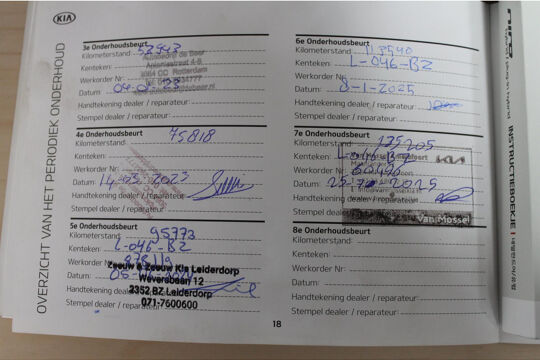 KIA
OVERZICHT VAN HET PERIODIEK ONDERHOUD
3e Onderhoudsbeurt
Kilometerstand: 53943
Kenteken:
Werkorder Nr:
Datum:
Handtekening dealer / reparateur:
Stempel dealer / reparateur:
4e Onderhoudsbeurt
Kilometerstand: 75818
Kenteken:
Werkorder Nr:
Datum: 14-03-2023
Handtekening dealer / reparateur:
Stempel dealer / reparateur:
5e Onderhoudsbeurt
Kilometerstand: 95773
Kenteken: L-046-BZ
Werkorder Nr:
Datum:
Zeeuw & Zeeuw Kia Leiderdorp
Weversbaan 12
Handtekening dealer
2352 BZ Leiderdorp
Stempel dealer / reparateur:
071-7600600
6e Onderhoudsbeurt
Kilometerstand: 113540
Kenteken: L-046-BZ
Werkorder Nr:
Datum: 8-1-2025
Handtekening dealer / reparateur:
Stempel dealer / reparateur:
7e Onderhoudsbeurt
Kilometerstand: 125205
Kenteken: L-046-BZ
Werkorder Nr:
Datum:
KIA
Handtekening dealer / reparateur:
Stempel dealer / reparateur:
Van Mossel
8e Onderhoudsbeurt
Kilometerstand:
Kenteken:
Werkorder Nr:
Datum:
Handtekening dealer / reparateur:
Stempel dealer / reparateur:
18
niro
INSTRUCTIEBOEKJE